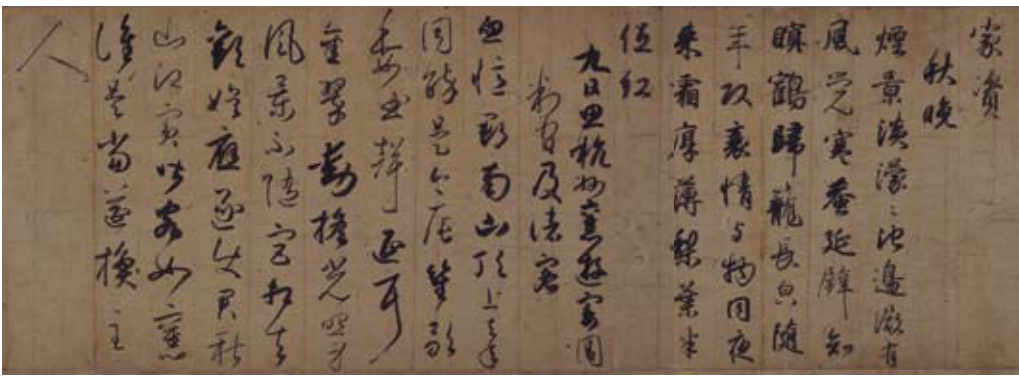 家資
秋晚
煙景淡濛〻池邊微有
風覺寒蛩近壁知
暝鶴歸籠長皃隨
年改衰情与物同夜
来霜厚薄梨葉半
低紅
九日思杭州舊遊寄周
判官及諸客
忽憶郡南山頂上昔時
同醉是今辰笙歌
委曲聲延耳
金翠動搖光照身
風景不随宮相去
歡娯應逐使君新
山江賓皆客如舊
唯是當筵換主
人